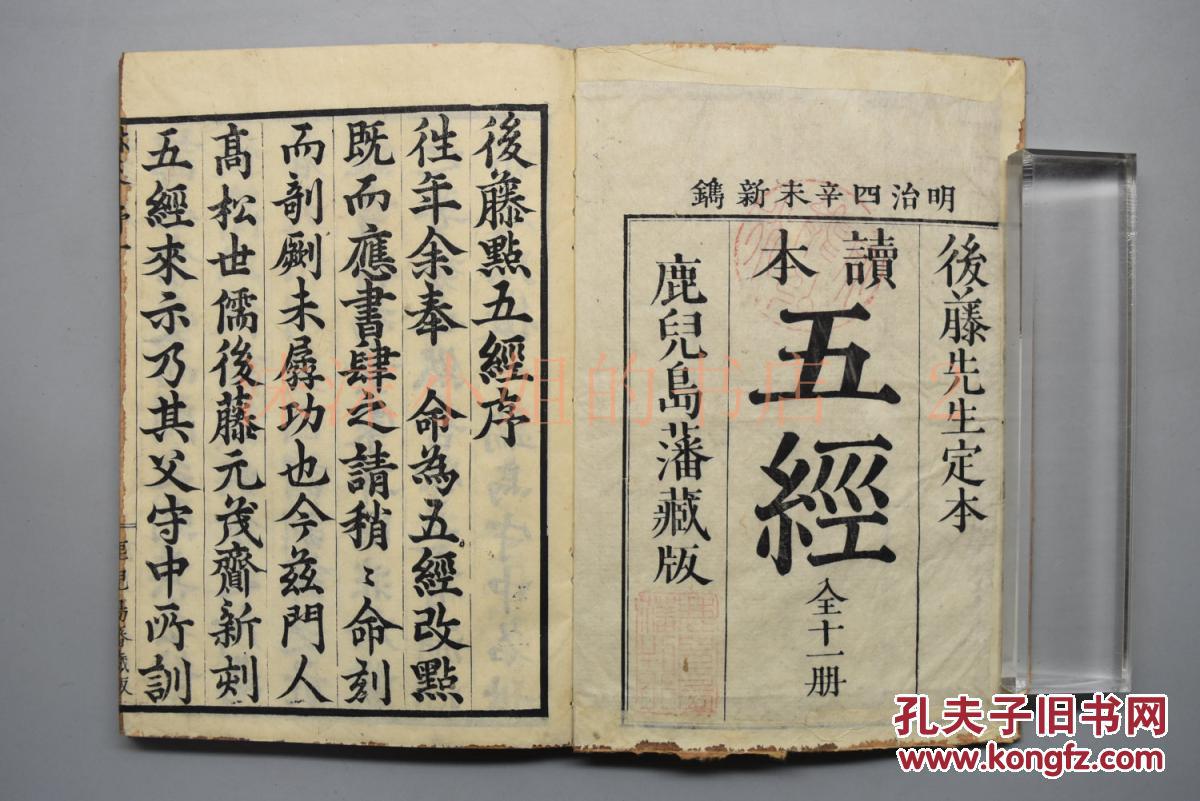 明治四辛未新鐫
後藤先生定本
讀本
五經
全十一册
鹿兒島藩藏版
後藤點五經序
徃年余奉 命為五經改點
既而應書肆之請稍〻命刻
而剞劂未孱功也今茲門人
髙松世儒後藤元茂齎新刻
五經來示乃其父守中所訓
沐沫小姐的书店
孔夫子旧书网
www.kongfz.com